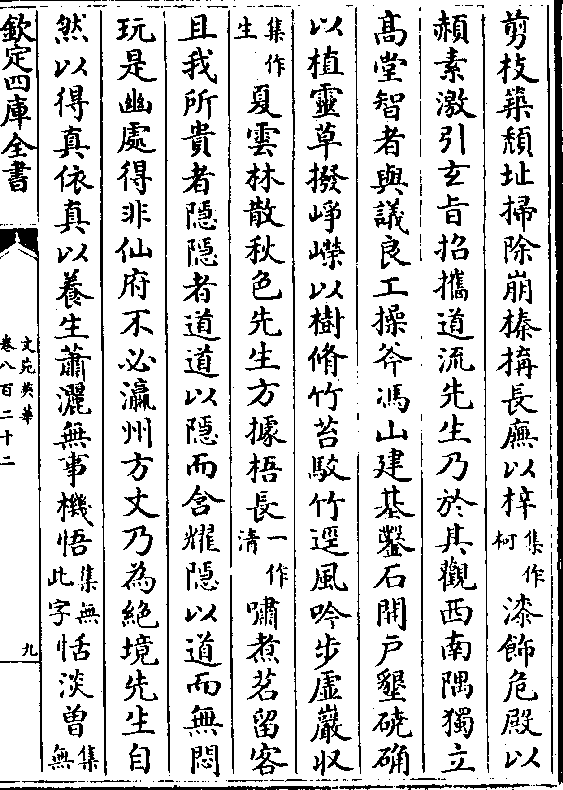 剪枝築頽址掃除崩榛搆長廡以梓集作柯漆飾危殿以
頳素激引玄㫖招攜道流先生乃於其觀西南隅獨立
髙堂智者與議良工操斧馮山建基鑿石開户墾磽确
以植靈草撥崢嶸以樹脩竹苔駮竹逕風吟步虛巖収
集作生夏雲林散秋色先生方據梧長一作清嘯煮茗留客
且我所貴者隠隠者道道以隠而含耀隠以道而無悶
玩是幽處得非仙府不必瀛州方丈乃為絶境先生自
然以得真依真以養生蕭灑無事機悟集無此字恬淡曽集無
欽定四庫全書
文苑英華
卷八百二十二
九